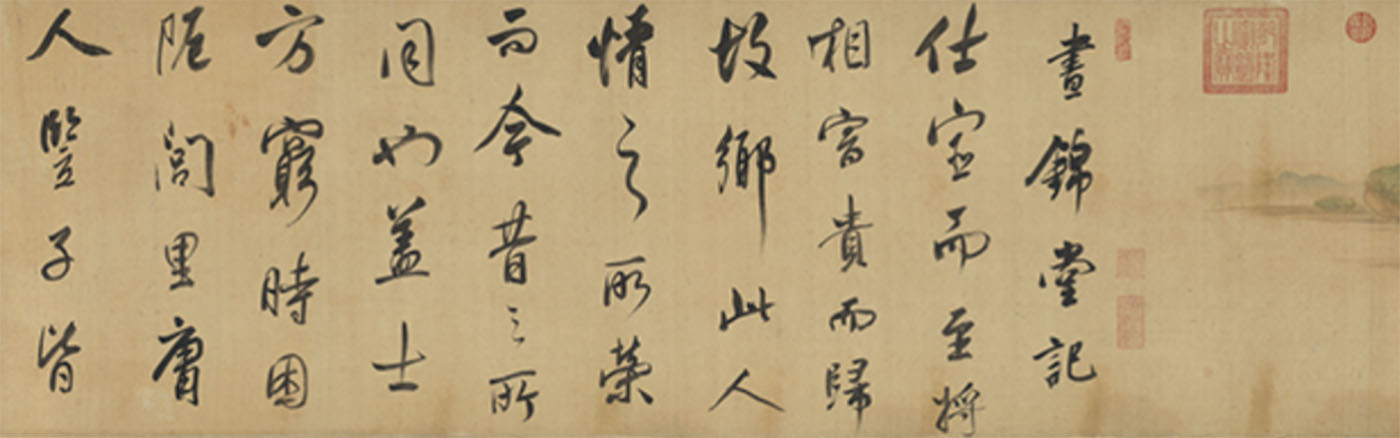 晝錦堂記
仕宦而至將
相富貴而歸
故鄉此人
情之所榮
而今昔之所
同也蓋士
方窮時困
阨閭里庸
人竪子皆